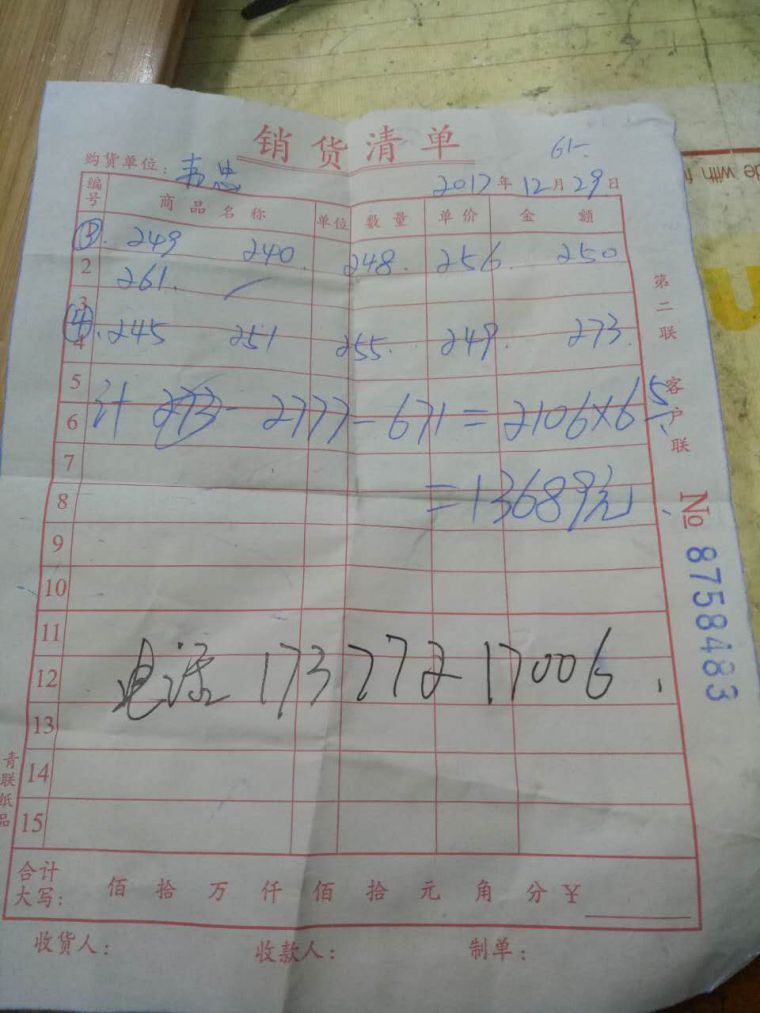 销货清单
61-
购货单位：韦忠
2017年12月29日
编号 商品名称 单位 数量 单价 金额
③. 249 240. 248. 256. 250
2 261.
3
④. 245 251 255. 249. 273.
4
5
6 计 2777-671=2106×6.5
7
8 =13689元.
9
10
11
12 电话 17377217006.
13
14
15
合计
大写： 佰 拾 万 仟 佰 拾 元 角 分 ¥
收货人： 收款人： 制单：
第二联 客户联
№ 8758483
青联纸品